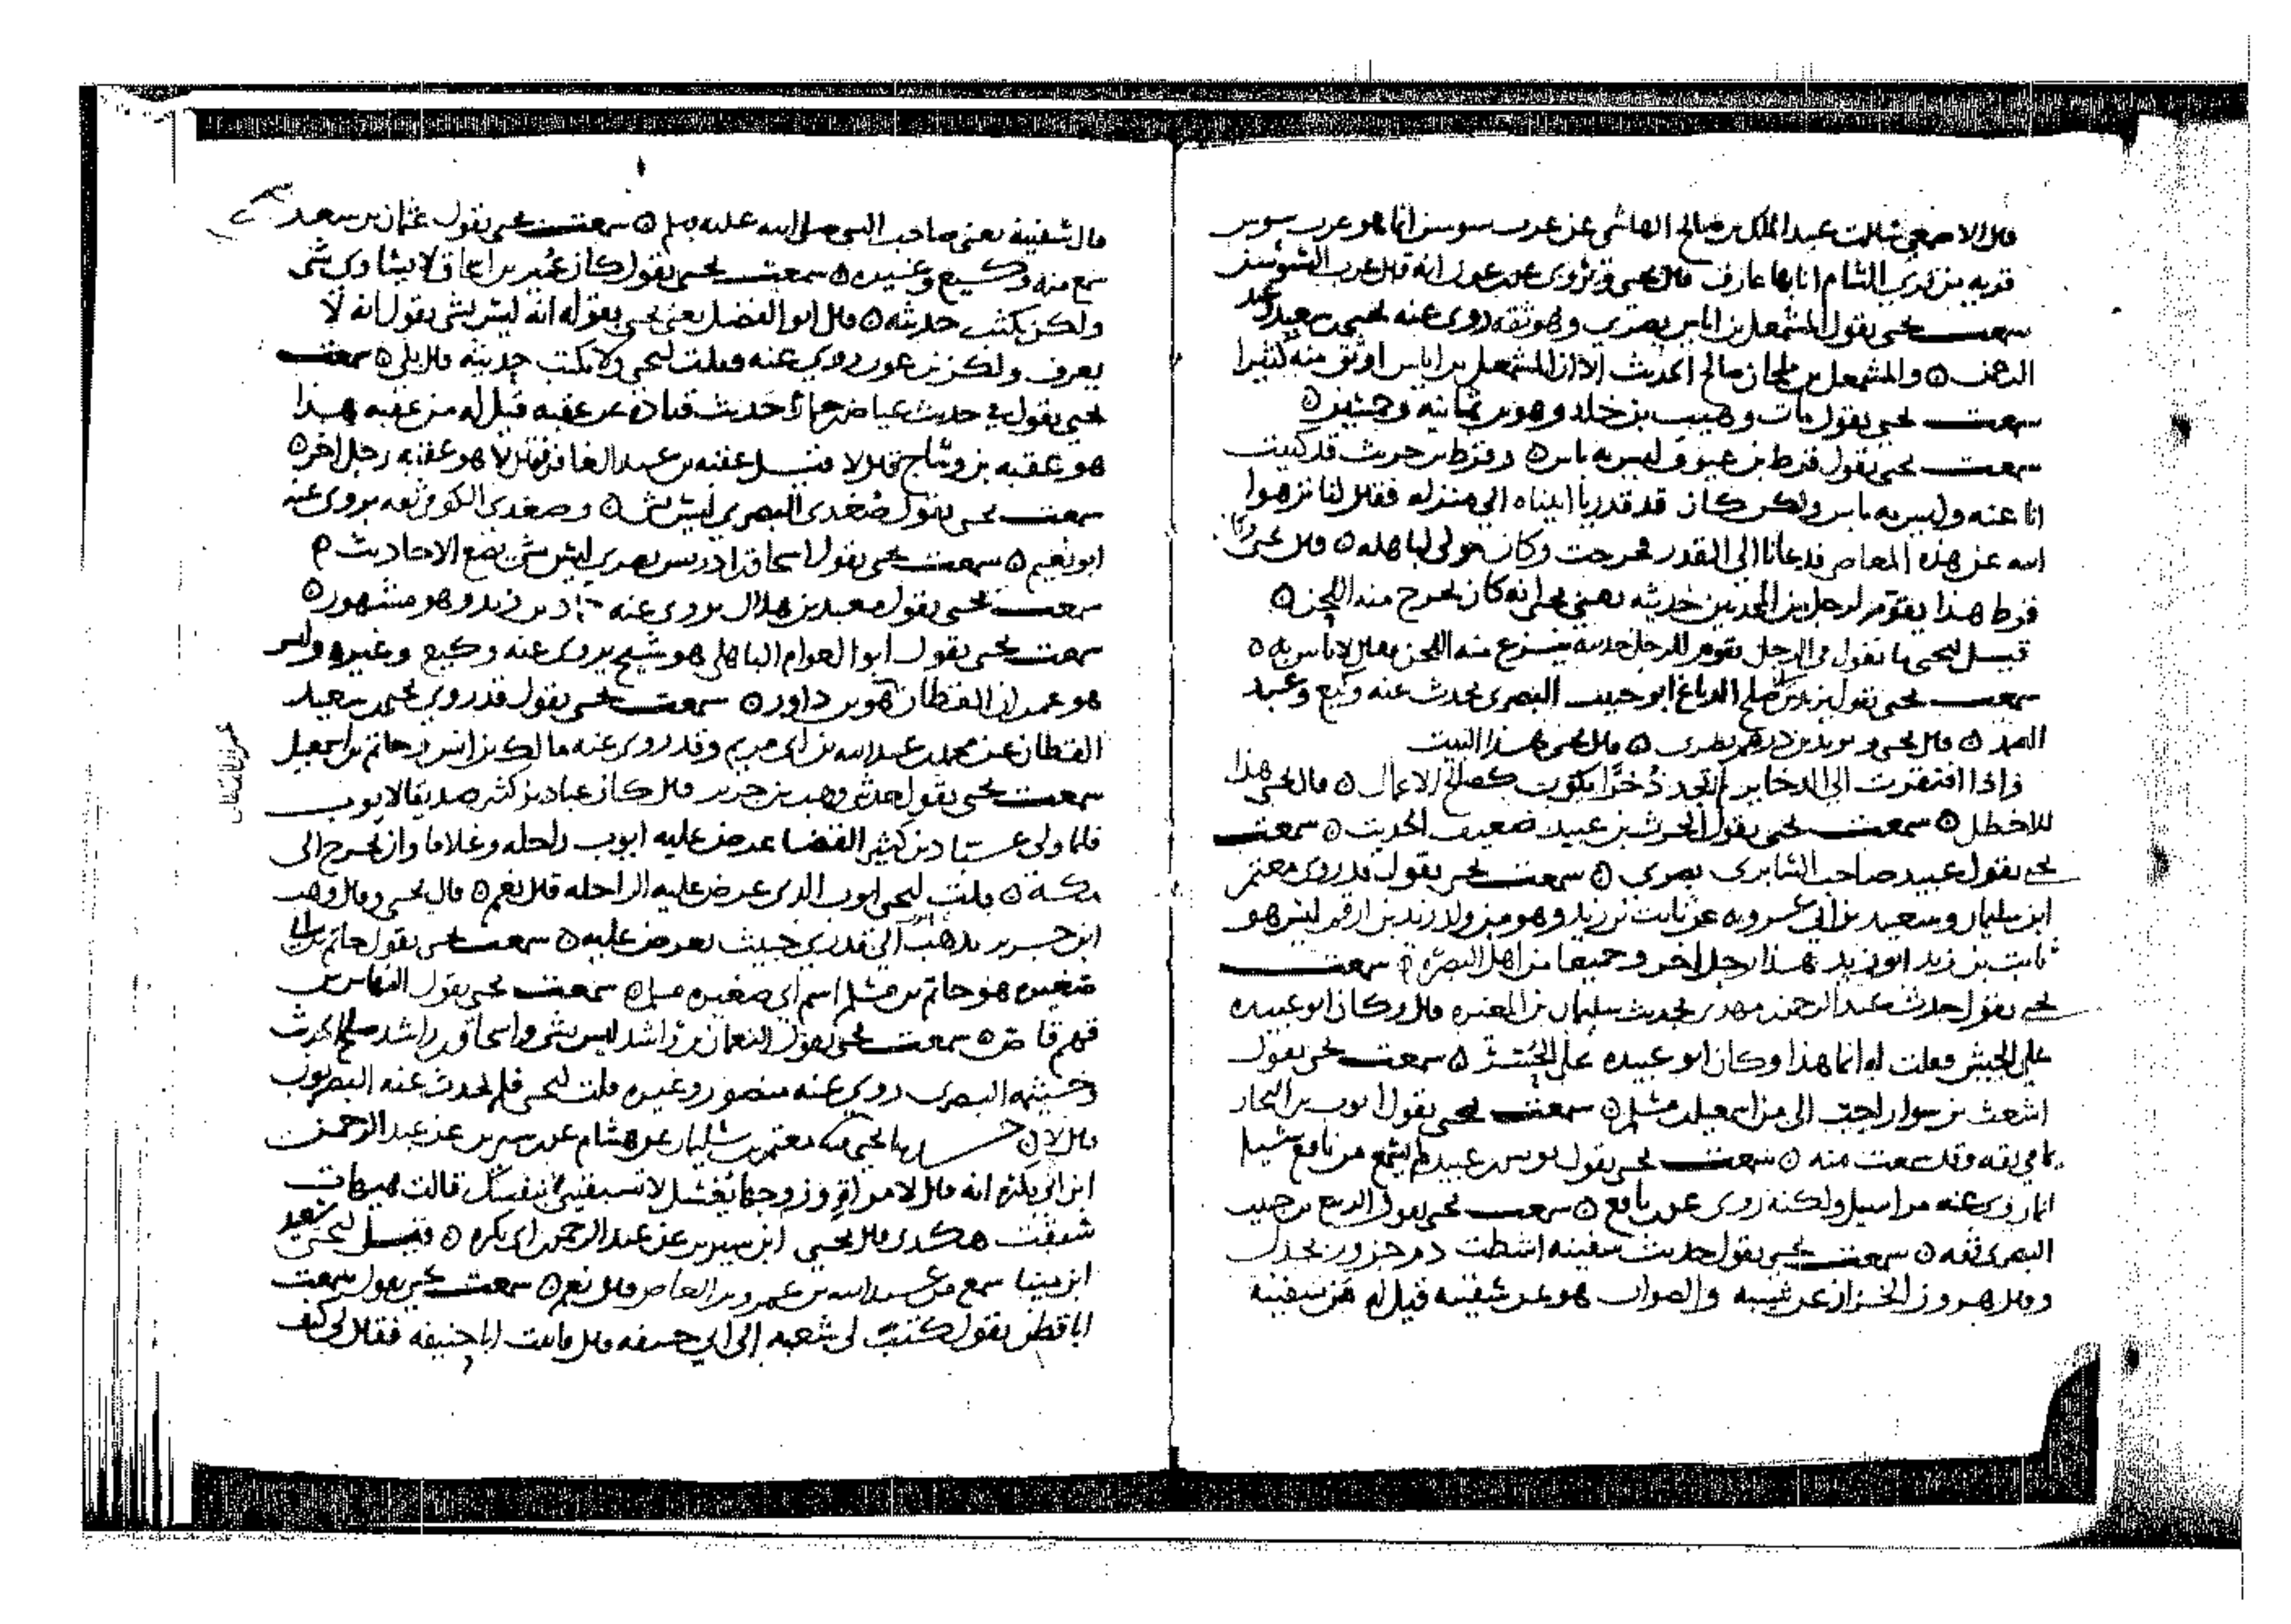 قال الاصمعي سالت عبد الملك بن صالح الهاشمي عن عرب سوسن انما هو عرب سوس
قريه من قري الشام انا بها عارف قال يحيى ويروى عن عون انه قال عرب السوسن
سمعت يحيى يقول المشمعل بن اياس بصري وهو ثقه روى عنه يحيى بن سعيد وعبد
الرحمن ۞ والمشمعل بن ملحان صالح الحديث الا ان المشمعل بن اياس اوثق منه كثيرا
سمعت يحيى يقول مات وهيب بن خالد وهو بن ثمانيه وخمسين ۞
سمعت يحيى يقول قرط بن عبوق ليس به باس ۞ وقرط بن حريث قد كتبت
انا عنه وليس به باس ولكن كان قدقدريا اتيناه الى منزله فقال لنا نزهوا
الله عن هذه المعاصي فدعانا الى القدر فخرجت وكان مولى لباهله ۞ قال يحيى كان
قرط هذا يقوم لرجل من المحدثين حديثه يعني يحيى انه كان يخرج منه اللحن ۞
قيل ليحيى ما تقول في الرجل يقوم للرجل حديثه ينزع منه اللحن فقال لا باس به ۞
سمعت يحيى يقول يزيد بن صالح الدباغ ابو حبيب البصرى يحدث عنه وكيع وعبد
الصمد ۞ قال يحيى ويزيد بن درهم بصرى ۞ قال يحيى هذا البيت
واذا افتقرت الى الدخاير لم تجد ذُخرًا يكون كصالح الاعمال ۞ قال يحيى هذا
للاخطل ۞ سمعت يحيى يقول الحرث بن عبيد ضعيف الحديث ۞ سمعت
يحيى يقول عبيد صاحب السابرى بصرى ۞ سمعت يحيى يقول قد روى معتمر
ابن سليمان وسعيد بن ابي عروبه عن ثابت بن زيد وهو من ولد زيد بن ارقم ليس هو
ثابت بن زيد ابو زيد هذا رجل اخر وجميعا من اهل البصره ۞ سمعت
يحيى يقول حدث عبد الرحمن بن مهدى بحديث سليمان بن المغيره قال وكان ابو عبيده
على الجيش فقلت له انما هذا وكان ابو عبيده على الحُسَّر ۞ سمعت يحيى يقول
اشعث بن سوار احب الى من اسمعيل بن مسلم ۞ سمعت يحيى يقول ايوب بن النجار
يمامي ثقه وقد سمعت منه ۞ سمعت يحيى يقول يونس بن عبيد لم يسمع من نافع شيا
انما روى عنه مراسيل ولكنه روى عن بن نافع ۞ سمعت يحيى يقول الربيع بن حبيب
البصرى ثقه ۞ سمعت يحيى يقول حديث سفينه اشطت دم جزور بجذل
وقال هرون الخزاز عن نسيبه والصواب هو عن سفينه قيل له من سفينة
قال سفينة يعنى صاحب النبى صلى الله عليه وسلم ۞ سمعت يحيى يقول عثمان بن سعد
سمع منه وكيع وغيره ۞ سمعت يحيى يقول كان عُمَير بن اسحاق لا يساوى شى
ولكن يكتب حديثه ۞ قال ابو الفضل يعنى يحيى بقوله انه ليس بشى يقول انه لا
يعرف ولكن بن عون روى عنه فقلت ليحيى ولا يكتب حديثه قال بلى ۞ سمعت
يحيى يقول في حديث عياض بن حمار حديث قتاده عن عقبه قيل له من عقبه هذا
هو عقبه بن وساج قال لا قيل عقبه بن عبد الغافر فقال لا هو عقبه رجل اخر ۞
سمعت يحيى يقول صُغدي البصري ليس بشى ۞ وصغدى الكوفي ثقه يروى عنه
ابو نعيم ۞ سمعت يحيى يقول اسحاق بن ادريس بصرى ليس بشى يضع الاحاديث
سمعت يحيى يقول معبد بن هلال يروى عنه حماد بن زيد وهو مشهور ۞
سمعت يحيى يقول ابو العوام الباهلي هو شيخ يروى عنه وكيع وغيره وليس
هو عمران القطان هو بن داور ۞ سمعت يحيى يقول قد روى يحيى بن سعيد
القطان عن محمد بن عبد الله بن ابى مريم وقد روى عنه مالك بن انس وحاتم بن اسمعيل
سمعت يحيى يقول حدثنى وهب بن جرير قال كان عباد بن كثير صديقا لايوب
فلما ولى عباد بن كثير القضا عرض عليه ايوب راحله وغلاما وان يخرج الى
مكة ۞ قلت ليحيى ايوب الذى عرض عليه الراحله قال نعم ۞ قال يحيى وقال وهب
ابن جرير يذهب الى قدرى خبيث يعرض عليه ۞ سمعت يحيى يقول حاتم بن ابى
صغيره هو حاتم بن مسلم اسم ابى صغيره مسلم ۞ سمعت يحيى يقول النهاس بن
قهم قاص ۞ سمعت يحيى يقول النعمان بن راشد ليس بشى واسحاق بن راشد صالح الحديث
وخيثمه البصرى روى عنه منصور وغيره قلت ليحيى فلم يحدث عنه البصريون
قال لا ۞ حدثنا يحيى معتمر بن سليمان عن هشام عن بن سيرين عن عبد الرحمن
ابن ابى بكره انه قال لامراةٍ وزوجها يغتسل لا تسبقنى بنفسك قالت هيهات
سُبقت هكذى قال يحيى ابن سيرين عن عبد الرحمن بن ابى بكره ۞ قيل ليحيى سعيد
ابن مينا سمع من عبد الله بن عمرو بن العاص قال نعم ۞ سمعت يحيى يقول سمعت
ابا قطن يقول كتب لى شعبه الى ابى حنيفه قال فاتيت ابا حنيفه فقال لى كيف